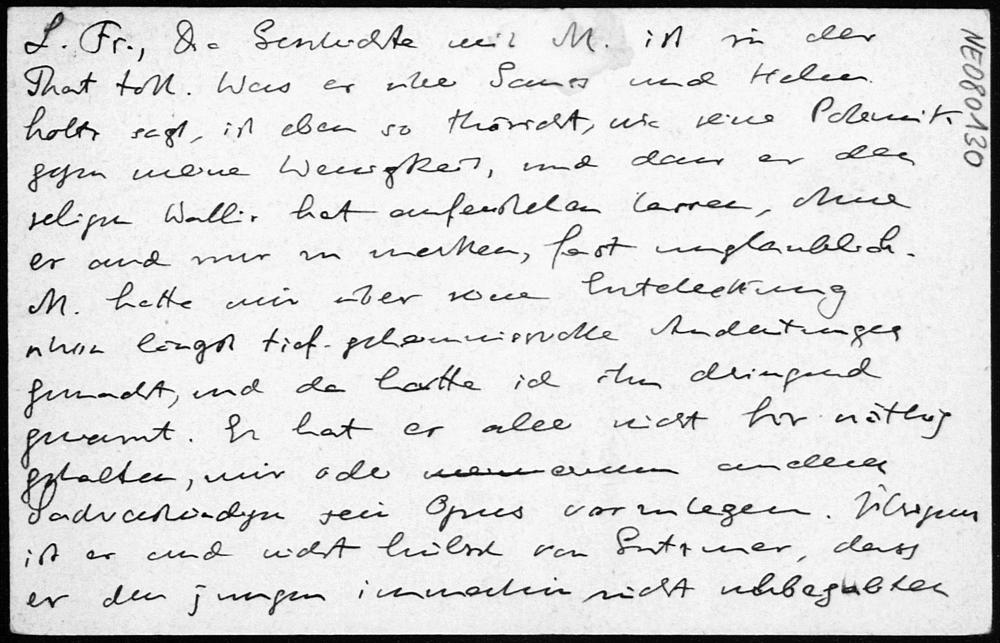 L. Fr., Die Geschichte mit M. ist in der
That toll. Was er über Gauss und Helm
holtz sagt, ist eben so thöricht, wie seine Polemik
gegen meine Wenigkeit, und dass er den
seligen Wallis hat auferstehen lassen, ohne
es auch nur zu merken, fast unglaublich.
M. hatte mir über seine Entdeckung
schon längst tief-geheimnissvolle Andeutungen
gemacht, und da hatte ich ihn dringend
gewarnt. Er hat es aber nicht für nöthig
gehalten, mir oder einem anderen
Sachverständigen sein Opus vorzulegen. Übrigens
ist es auch nicht hübsch von , dass
er den jungen immerhin nicht unbegabten
NE080130